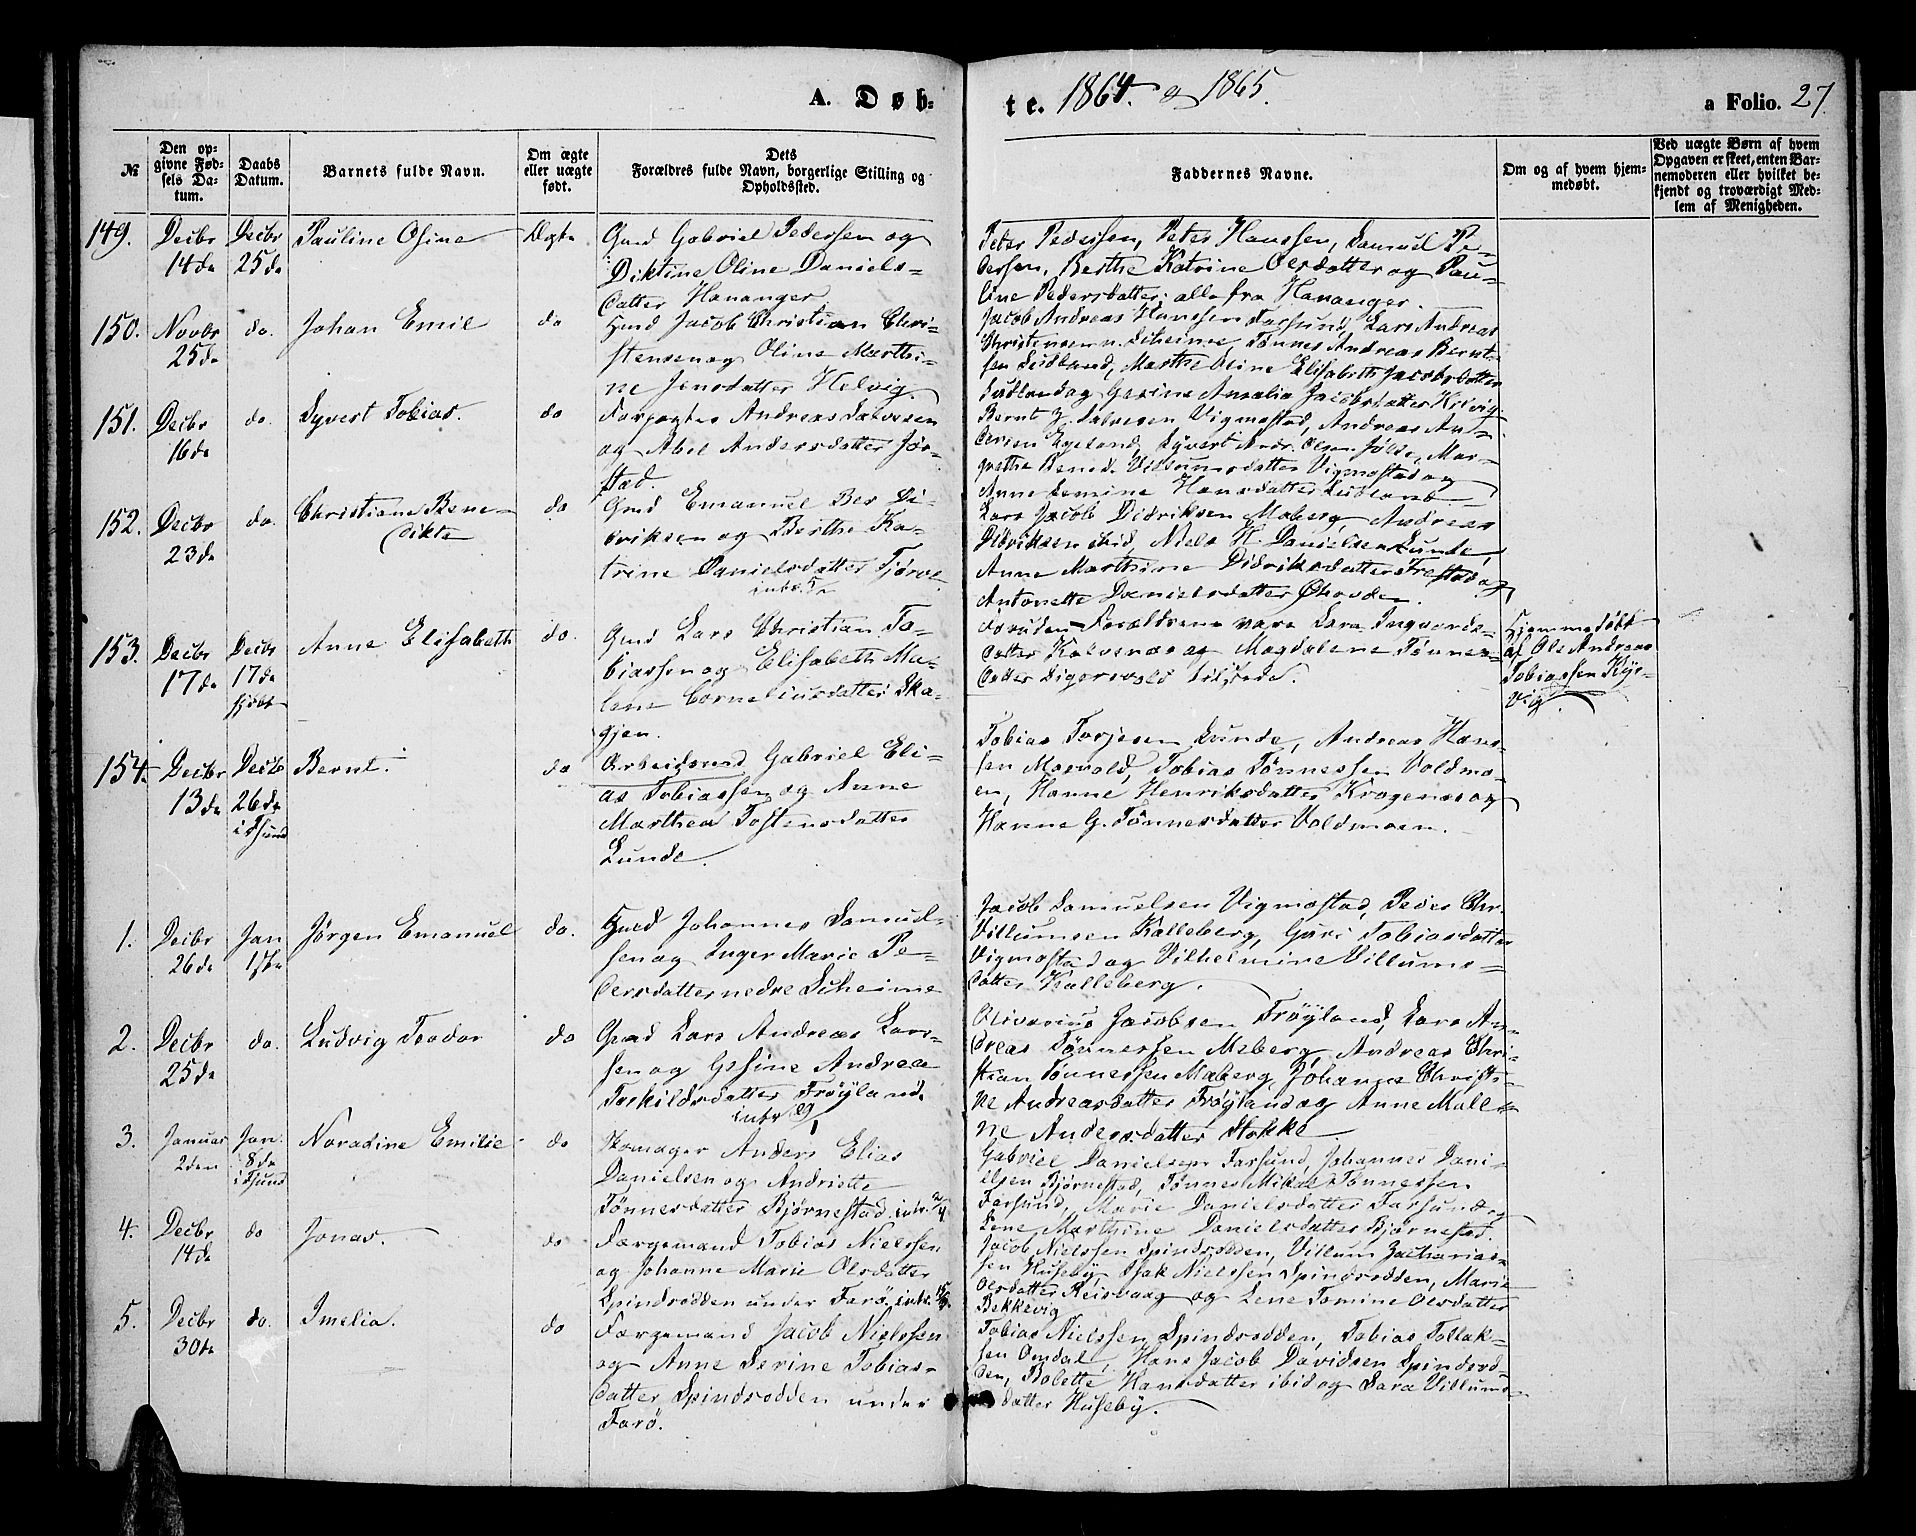 A. Døb-
te. 1864. og 1865.
a Folio. 27.
№
Den op-
givne Fød-
sels Da-
tum.
Daabs
Datum.
Barnets fulde Navn.
Om ægte
eller uægte
født.
Dets
Forældres fulde Navn, borgerlige Stilling og
Opholdssted.
Faddernes Navne.
Om og af hvem hjem-
medøbt.
Ved uægte Børn af hvem
Opgaven er skeet, enten Bar-
nemoderen eller hvilket be-
kjendt og troværdigt Med-
lem af Menigheden.
149.
Decbr
14de
Decbr
25de
Pauline Osine
Ægte
Gmd Gabriel Pedersen og
Diktine Oline Daniels-
datter Hananger
Peter Pedersen, Peter Hanssen, Samuel Pe-
dersen, Berthe Katrine Olsdatter og Pau-
line Pedersdatter, alle fra Hananger.
150.
Novbr
25de
do.
Johan Emil
do
Hmd Jacob Christian Chri-
stensen og Oline Marthi-
ne Jensdatter Helvig.
Jacob Andreas Hanssen Farsund, Lars Andreas
Christensen n. Scheime, Tønnes Andreas Bernt-
sen Lidland, Marthe Oline Elisabeth Jacobsdatter
Lidland og Gesine Amalia Jacobsdatter Helvig.
151.
Decbr
16de
do.
Syvert Tobias.
do
Forpagter Andreas Salvesen
og Abel Andersdatter Jør-
stad.
Bernt J. Salvesen Vigmostad, Andreas An-
dersen Egeland, Syvert Andr. Olsen Jølle, Mar-
grethe Bened. Villumsdatter Vigmostad og
Anne Semine Hansdatter Lidland
152.
Decbr
23de
do.
Christiane Bene-
dikte
do
Gmd Emanuel Ber Di-
driksen og Berthe Ka-
trine Danielsdatter Tjørve
Lars Jacob Didriksen Maberg, Andreas
Didriksen ibid, Niels H. Danielsen Lunde,
Anne Marthine Didriksdatter Frestad og
Antonette Danielsdatter Øhovden.
153.
Decbr
17de
Decbr
17de
hjdbt
Anne Elisabeth
do.
Gmd Lars Christian To-
biassen og Elisabeth Ma-
lene Corneliusdatter Ska-
gjen.
Foruden Forældrene vare Sara Ingvords-
datter Kalvenæs og Magdalene Tønnes-
datter Digersvold tilstede.
Hjemmedøbt
af Ole Andreas
Tobiassen Kje-
vig.
154.
Decbr
13de
Decbr
26de
i Fsund
Bernt.
do
Arbeidsmd Gabriel Eli-
as Tobiassen og Anne
Marthea Tostensdatter
Lunde.
Tobias Torjesen Lunde, Andreas Hans-
sen Mosvold, Tobias Tønnessen Voldmo-
en, Hanne Henriksdatter Kragenæs og
Hanne G. Tønnesdatter Voldmoen.
1.
Decbr
26de
Jan
1ste
Jørgen Emanuel
do.
Hmd Johannes Samuel-
sen og Inger Marie Pe-
dersdatter nedre Scheime
Jacob Samuelsen Vigmostad, Peder Chr.
Villumsen Kalleberg, Guri Tobiasdatter
Vigmostad og Vilhelmine Villums-
datter Kalleberg.
2.
Decbr
25de
do.
Ludvig Teodor
do
Gmd Lars Andreas Lar-
sen og Gesine Andrea
Torkildsdatter Frøyland.
Olivarius Jacobsen Frøyland, Lars An-
dreas Tønnessen Maberg, Andreas Chri-
stian Tønnessen Maberg, Johanne Christi-
ne Andreasdatter Frøyland og Anne Malle-
ne Andersdatter Stokke.
3.
Januar
2den
Jan.
8de
i Fsund
Noradine Emilie
do
Skomager Anders Elias
Danielsen og Andriette
Tønnesdatter Bjørnestad. intr. 2/4
Gabriel Danielsen Farsund, Johannes Dani-
elsen Bjørnestad, Tønnes Mikal Tønnessen
Farsund, Marie Danielsdatter Farsund og
Lene Marthine Danielsdatter Bjørnestad.
4.
Decbr
14de
do
Jonas.
do
Færgemand Tobias Nielssen
og Johanne Marie Olsdatter
Spindsodden under Farø.
Jacob Nielssen Spindsodden, Villum Zacharias-
sen Huseby, Isak Nielssen Spindsodden, Marie
Olsdatter Reisvaag og Lene Tomine Olsdatter
Bekkevig
5.
Decbr
30de
do.
Imelia.
do
Færgemand Jacob Nielssen
og Anne Serine Tobias-
datter Spindsodden under
Farø.
Tobias Nielssen Spindsodden, Tobias Tollak-
sen Omdal, Hans Jacob Davidsen Spindsod-
den, Bolette Hansdatter ibid og Sara Villums-
datter Huseby.